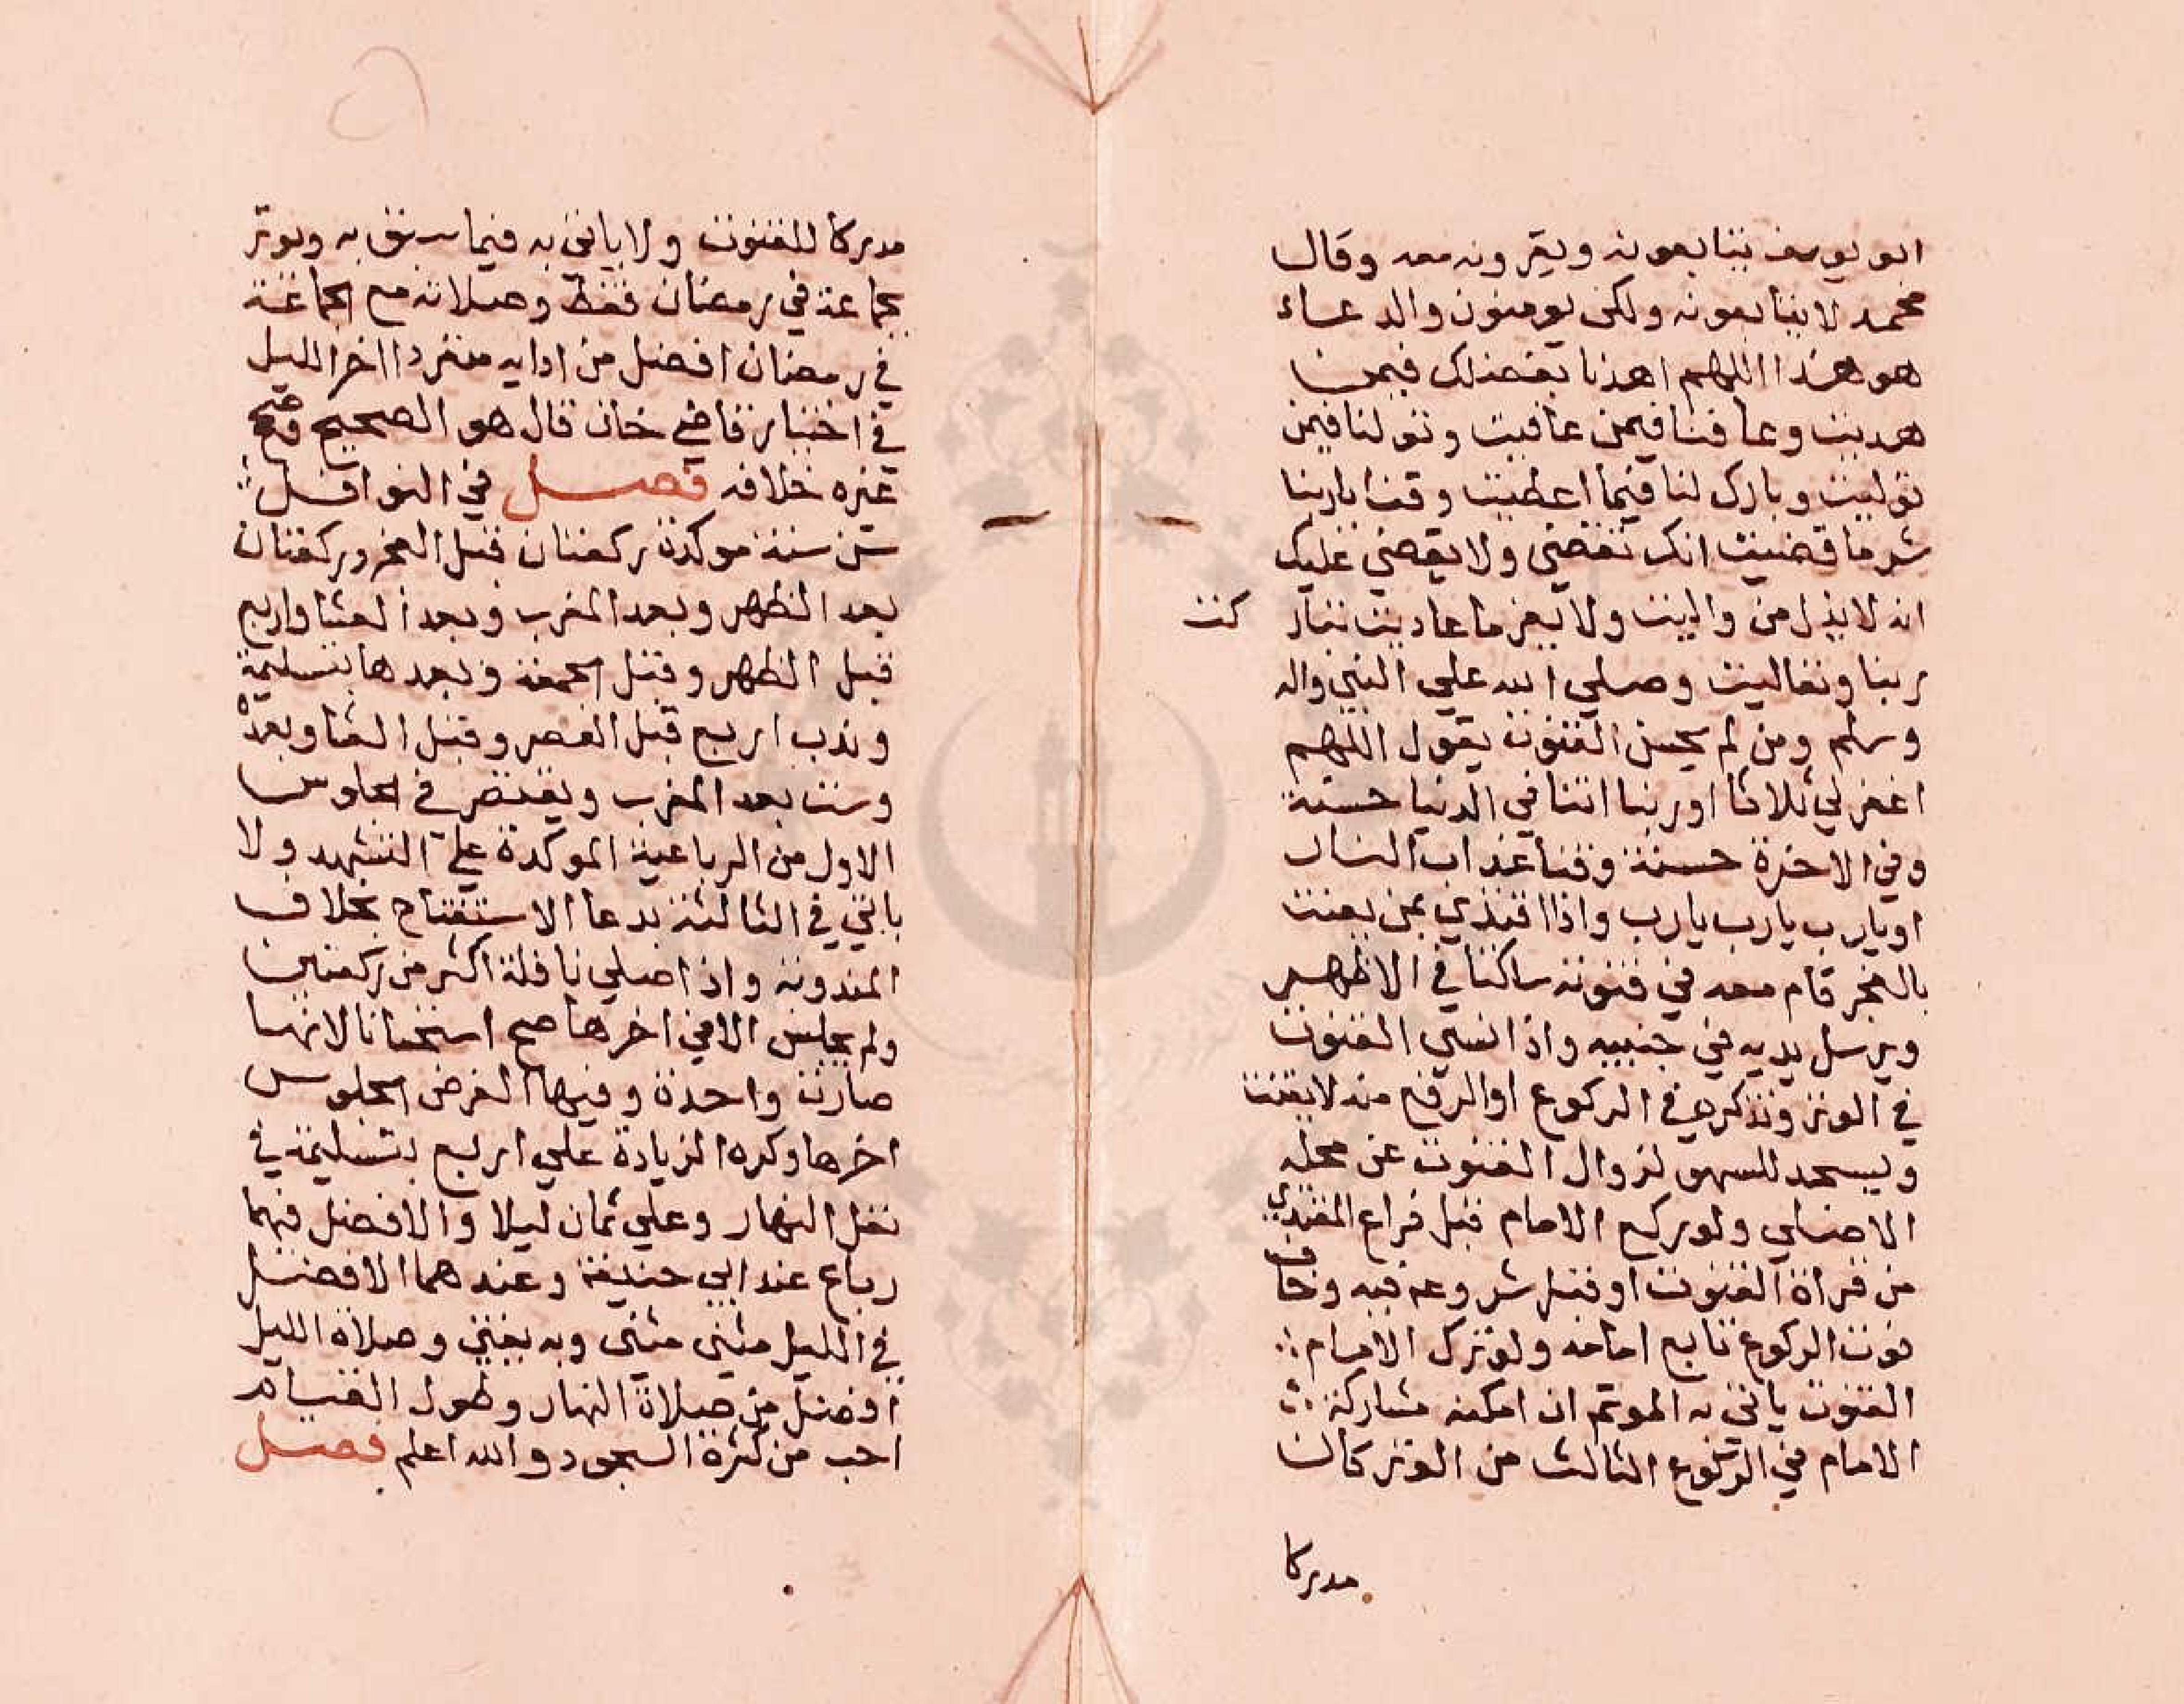 ابو يوسف يتابعونه ويقرونه معه وقال
محمد لا يتابعونه ولكن يومنون والدعاء
هو هذا اللهم اهدنا بفضلك فيمن
هديت وعافنا فيمن عافيت وتولنا فيمن
توليت وبارك لنا فيما اعطيت وقنا ياربنا
شر ما قضيت انك تقضي ولا يقضي عليك
انه لا يذل من واليت ولا يعز من عاديت تبار كت
ربنا وتعاليت وصلي الله علي النبي واله
وسلم ومن لم يحسن القنوت يقول اللهم
اغفر لي ثلاثا او ربنا اتنا في الدنيا حسنة
وفي الاخرة حسنة وقنا عذاب النار
او يارب يارب يارب واذا اقتدي بمن يقنت
بالفجر قام معه في قنوته ساكتا في الاظهر
ويرسل يديه في جنبيه واذا نسي القنوت
في الوتر وتذكره في الركوع او الرفع منه لا يقنت
ويسجد للسهو لزوال القنوت عن محله
الاصلي ولو ركع الامام قبل فراغ المقتدي
من قراة القنوت او قبل شروعه فيه وخاف
فوت الركوع تابع امامه ولو ترك الامام
القنوت ياتي به الموتم ان امكنه مشاركة
الامام في الركوع الثالث من الوتر كان
مدركا
مدركا للقنوت ولا ياتي به فيما سبق به ويوتر
بجماعة في رمضان فقط وصلاته مع الجماعة
في رمضان افضل من ادايه منفردا اخر الليل
في اختيار قاضي خان قال هو الصحيح وصحح
غيره خلافه فصل في النوافل
سن سنة موكدة ركعتان قبل الفجر وركعتان
بعد الظهر وبعد المغرب وبعد العشا واربع
قبل الظهر وقبل الجمعة وبعدها بتسليمة
وندب اربع قبل العصر وقبل العشا وبعده
وست بعد المغرب ويقتصر في الجلوس
الاول من الرباعية الموكدة علي التشهد ولا
ياتي في الثالثة بدعا الاستفتاح بخلاف
المندوبة واذا صلي نافلة اكثر من ركعتين
ولم يجلس الا في اخرها صح استحسانا لانها
صارت واحدة وفيها الفرض الجلوس
اخرها وكره الزيادة علي اربع بتسليمة في
نفل النهار وعلي ثمان ليلا والافضل فيهما
رباع عند ابي حنيفة وعندهما الافضل
في الليل مثني مثني وبه يفتي وصلاة الليل
افضل من صلاة النهار وطول القيام
احب من كثرة السجود والله اعلم فصل